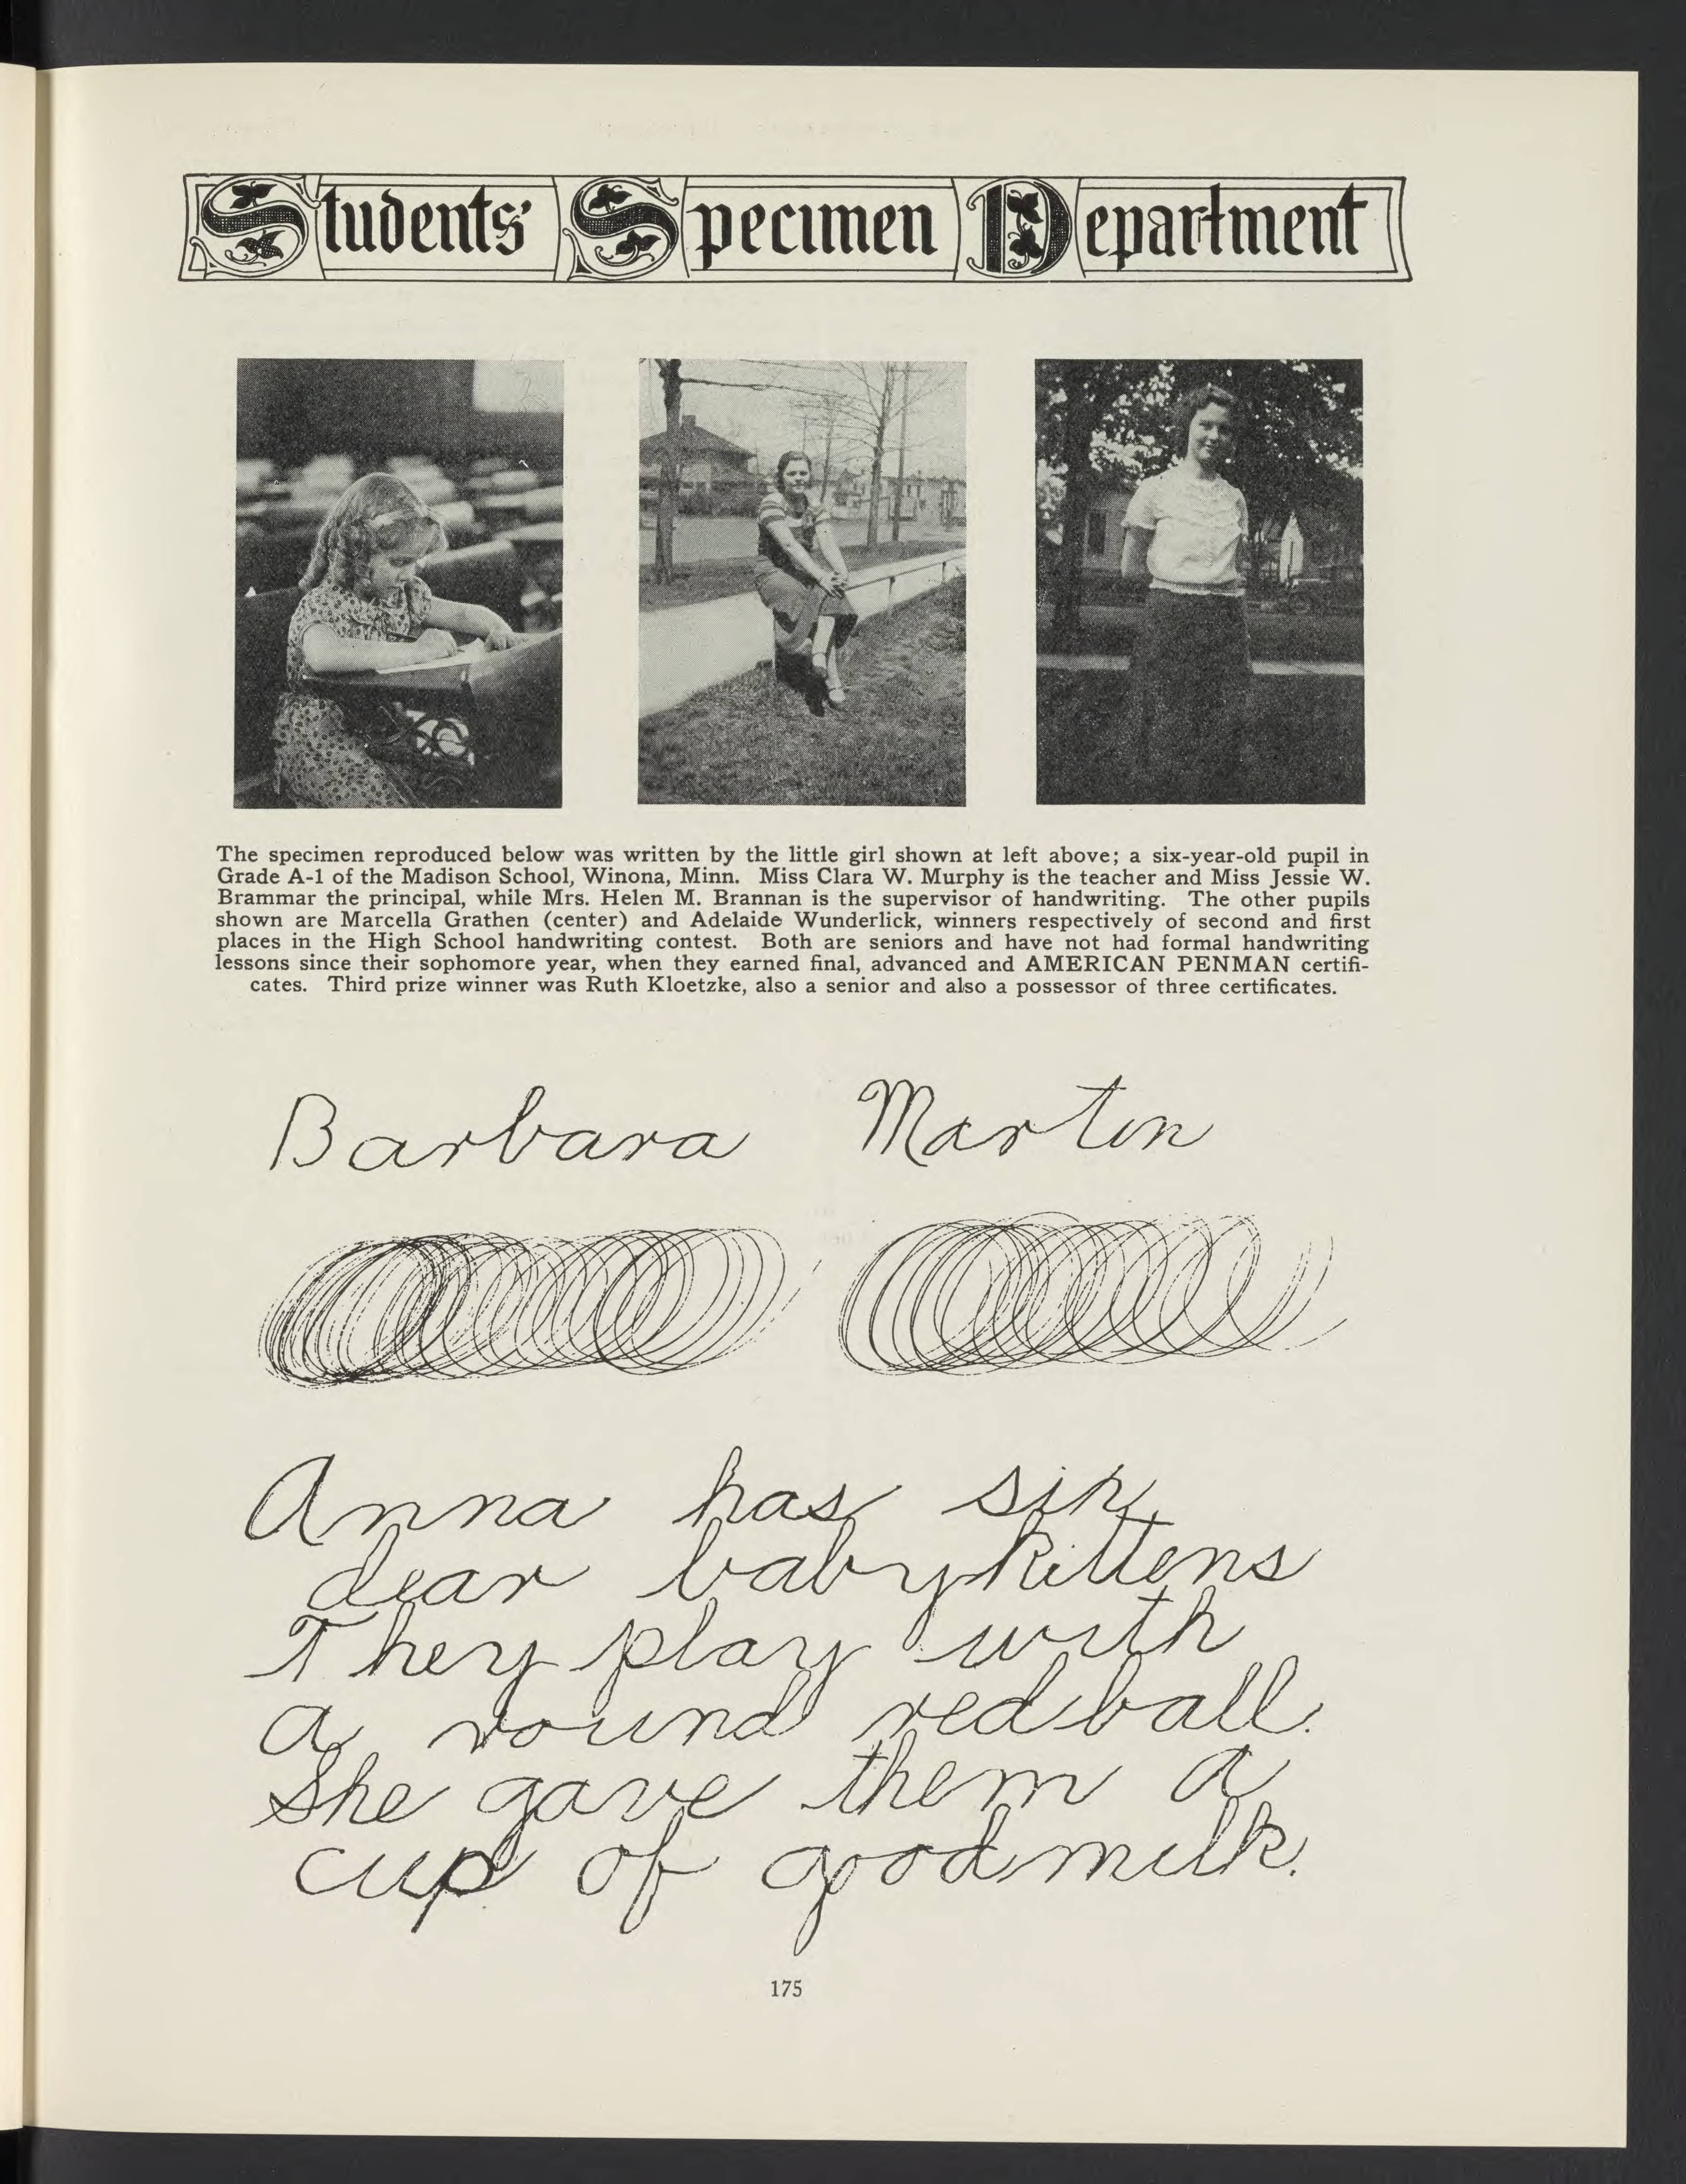 Students' Specimen Department
The specimen reproduced below was written by the little girl shown at left above; a six-year-old pupil in
Grade A-1 of the Madison School, Winona, Minn. Miss Clara W. Murphy is the teacher and Miss Jessie W.
Brammar the principal, while Mrs. Helen M. Brannan is the supervisor of handwriting. The other pupils
shown are Marcella Grathen (center) and Adelaide Wunderlick, winners respectively of second and first
places in the High School handwriting contest. Both are seniors and have not had formal handwriting
lessons since their sophomore year, when they earned final, advanced and AMERICAN PENMAN certifi-
cates. Third prize winner was Ruth Kloetzke, also a senior and also a possessor of three certificates.
Barbara Martin
Anna has six
dear baby kittens
They play with
a round red ball.
She gave them a
cup of good milk.
175